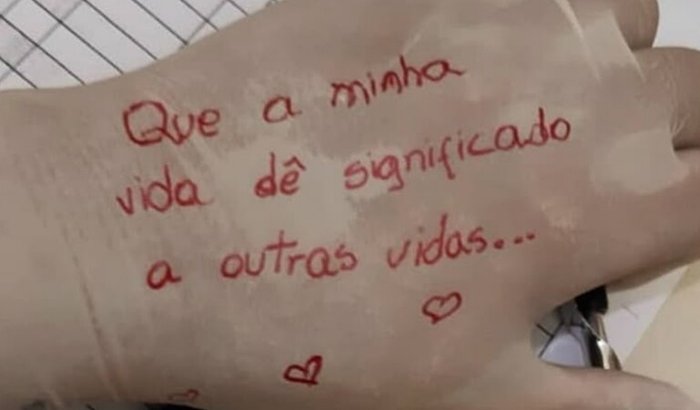 Que a minha
vida dê significado
a outras vidas...